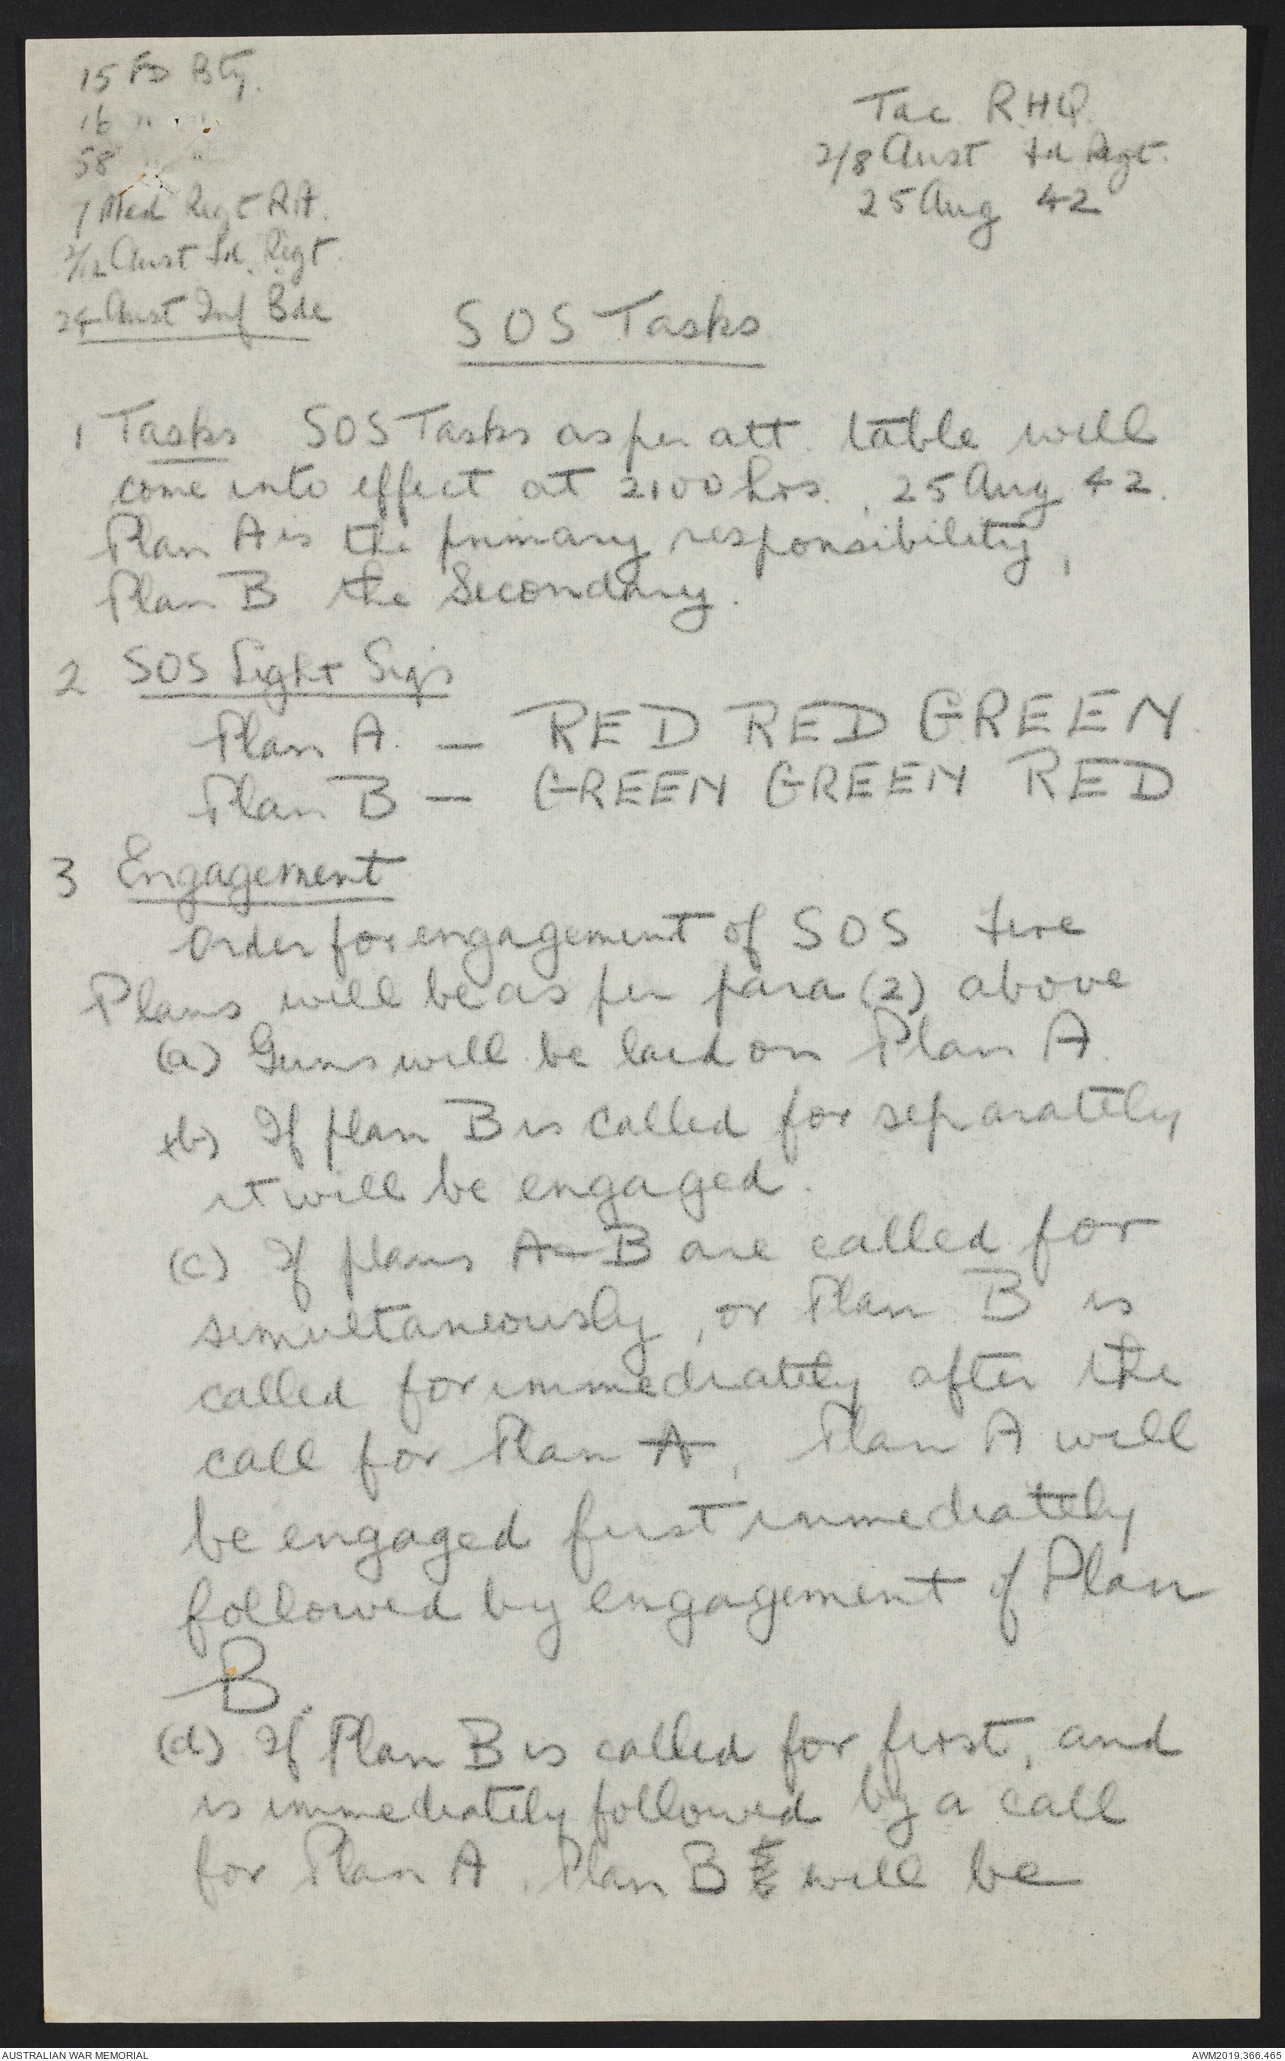 15 FD Bty.
16 " "
58 " "
7 Med Regt R.A.
2/12 Aust Fd. Regt.
24 Aust Inf Bde
Tac R.H.Q.
2/8 Aust Fd Regt.
25 Aug 42
SOS Tasks
1 Tasks SOS Tasks as per att. table will
come into effect at 2100 hrs. 25 Aug 42.
Plan A is the primary responsibility,
Plan B the Secondary.
2 SOS Light Sigs
Plan A. — RED RED GREEN.
Plan B — GREEN GREEN RED
3 Engagement
Order for engagement of SOS fire
Plans will be as per para (2) above
(a) Guns will be laid on Plan A.
(b) If plan B is called for separately
it will be engaged.
(c) If plans A-B are called for
simultaneously, or Plan B is
called for immediately after the
call for Plan A, Plan A will
be engaged first immediately
followed by engagement of Plan
B.
(d) If Plan B is called for first, and
is immediately followed by a call
for Plan A, Plan B will be
AUSTRALIAN WAR MEMORIAL
AWM2019.366.465